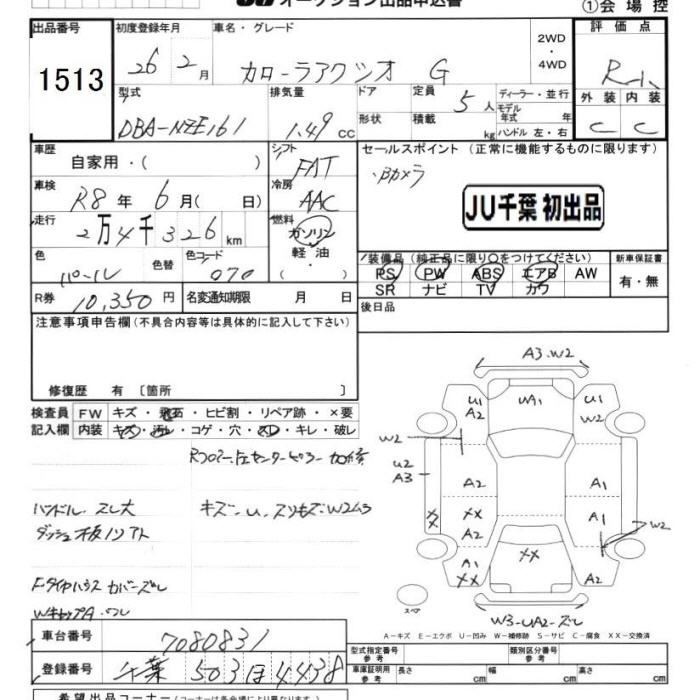 オークション出品申込書
①会場控
出品番号
1513
初度登録年月
26 2月
車名・グレード
カローラアクシオ G
2WD
・
4WD
評価点
R-1
外装 内装
C C
型式
DBA-NZE161
排気量
1.49 cc
ドア
形状
定員 5人
積載 kg
ディーラー・並行
モデル
年式 年
ハンドル 左・右
車歴
自家用・( )
シフト
FAT
セールスポイント (正常に機能するものに限ります)
・Bカメラ
JU千葉 初出品
車検
R8年 6月( 日)
冷房
AAC
走行
2万4千326km
燃料
ガソリン
軽油
・( )
色
パール
色替
色コード
070
装備品(純正品に限り○をつけてください)
PS PW ABS エアB AW
SR ナビ TV カワ
新車保証書
有・無
R券 10,350円
名変通知期限 月 日
後日品
注意事項申告欄(不具合内容等は具体的に記入して下さい)
修復歴 有 〔箇所 〕
検査員
記入欄
FW キズ・飛石・ヒビ割・リペア跡・×要
内装 キズ・汚レ・コゲ・穴・スレ・キレ・破レ
Rフロアー 左センターピラー
ハンドル スレ大
キズ-U. スリキズ. W2ムラ
ダッシュ板
Fタイヤハウス カバーズレ
WキャップA・ワレ
A3・W2
U1
A2
UA1
U1
W2
W2
U2
A3
A2
A1
XX
XX
A2
W2
XX
A1
XX
A2
スペア
W3-UA2-ズレ
A-キズ E-エクボ U-凹み W-補修跡 S-サビ C-腐食 XX-交換済
車台番号
7080831
登録番号
千葉 503 ほ 4438
型式指定番号
参考
類別区分番号
参考
車庫証明用
参考
長さ cm
幅 cm
高さ cm
希望出品コーナー